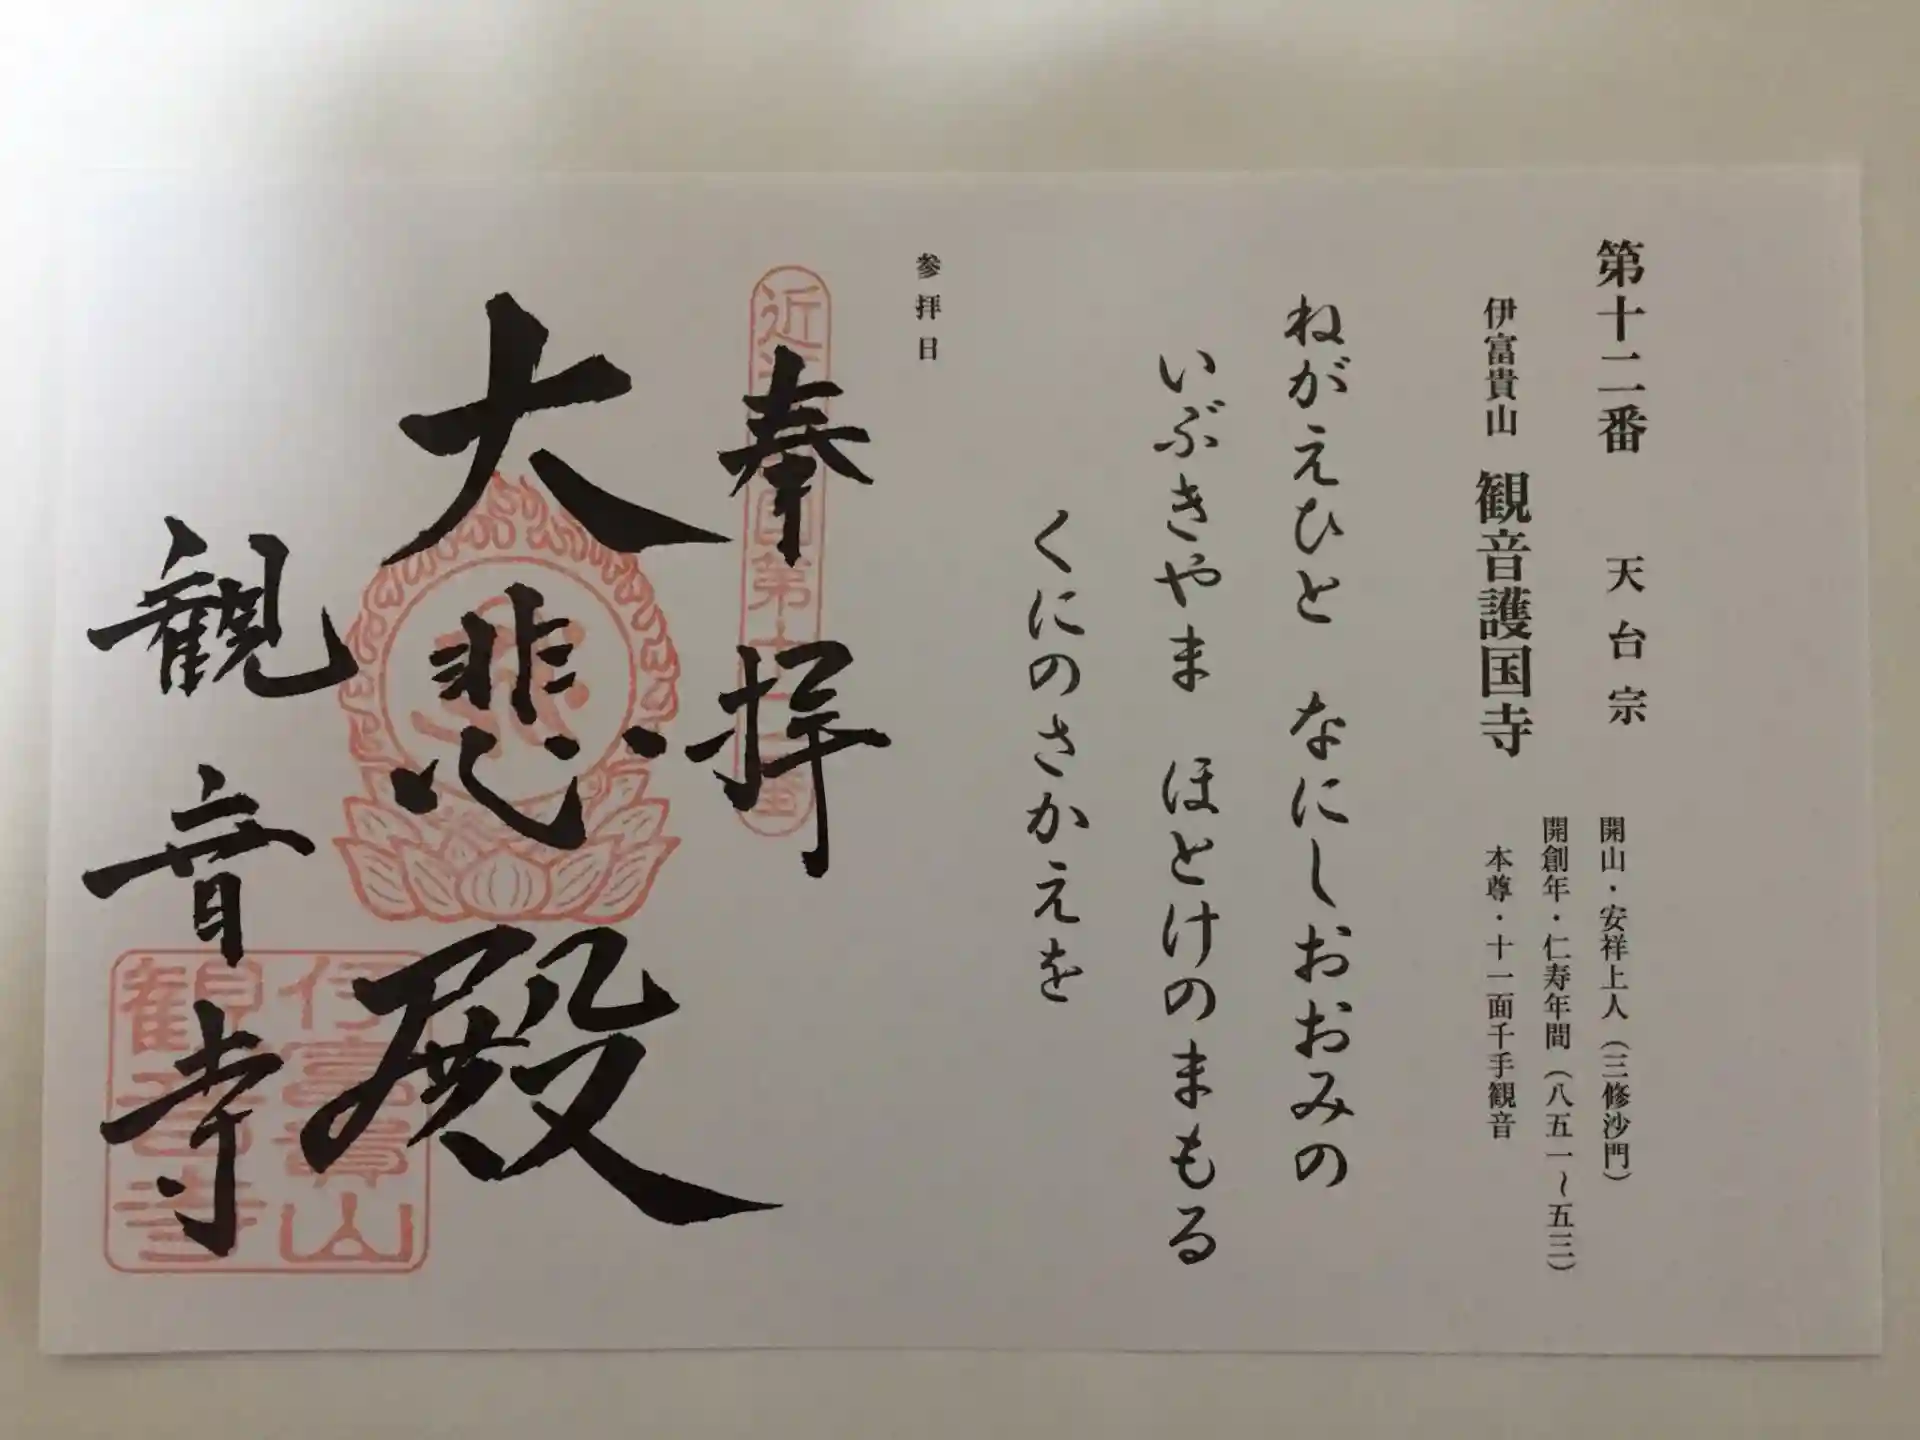 第十二番 天台宗
伊富貴山 観音護国寺
開山・安祥上人（三修沙門）
開創年・仁寿年間（八五一〜五三）
本尊・十一面千手観音
ねがえひと なにしおおみの
いぶきやま ほとけのまもる
くにのさかえを
参拝日
奉拝
大悲殿
観音寺
伊富貴山
観音寺